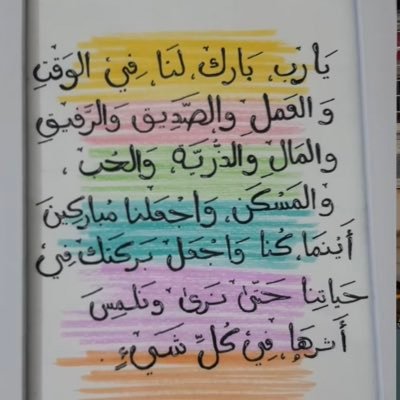 يَا رب بَارك لَنا فِي الوَقتِ
وَالعَمل والصَّديق وَالرَّفيقِ
والمَالِ والذُّريَّة والحُب ،
والمَسْكَن، وَاجْعَلنا مُباركينَ
أَيْنمَا كُنا وَاجْعَل بَركتك فِي
حَياتِنا حَتىٰ نَرىٰ ونَلمِسَ
أَثرهَا فِي كُلِّ شَيءٍ .